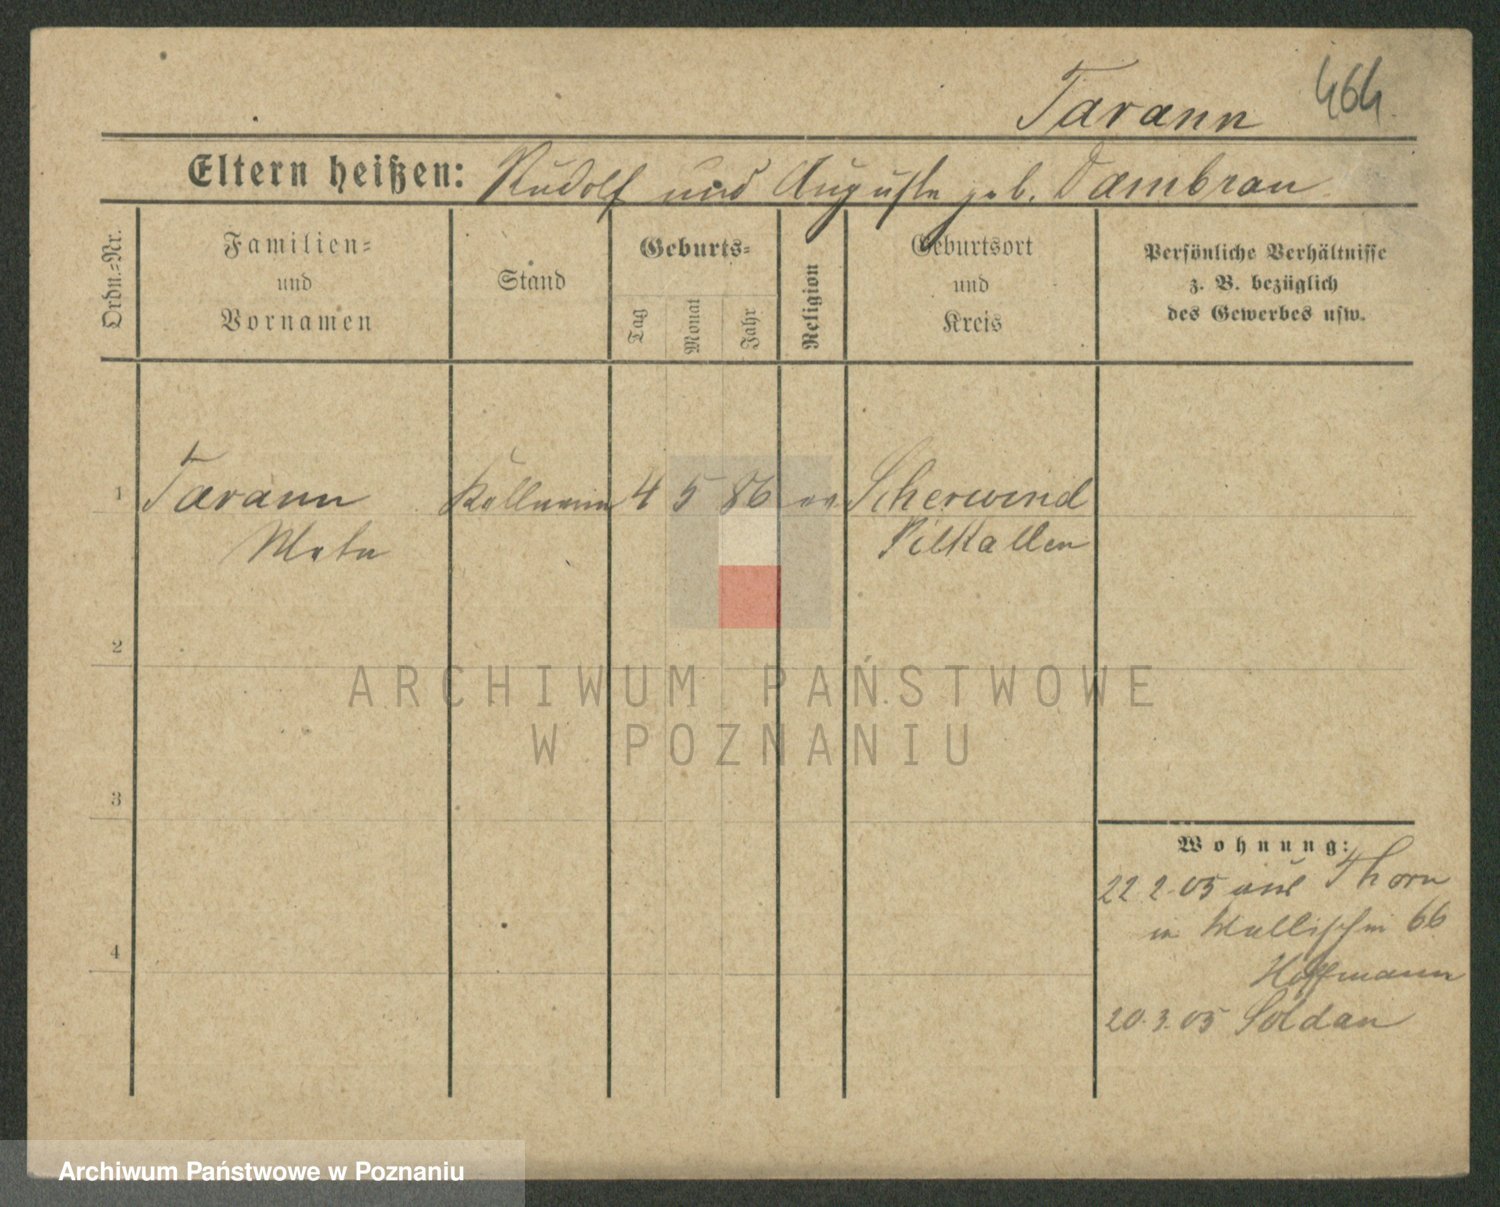 Tarann 464
Eltern heißen: Rudolf und Auguste geb. Dambrau
Ordn.=Nr.
Familien=
und
Vornamen
Stand
Geburts=
Tag
Monat
Jahr
Religion
Geburtsort
und
Kreis
Persönliche Verhältnisse
z. B. bezüglich
des Gewerbes usw.
1 Tarann Kellnerin 4 5 86 Scherwind
Meta Pillkallen
2
ARCHIWUM PAŃSTWOWE
W POZNANIU
3
4
Wohnung:
22 2. 05 aus Thorn
in Wallischei 66
Hoffmann
20. 3. 05 Soldau
Archiwum Państwowe w Poznaniu